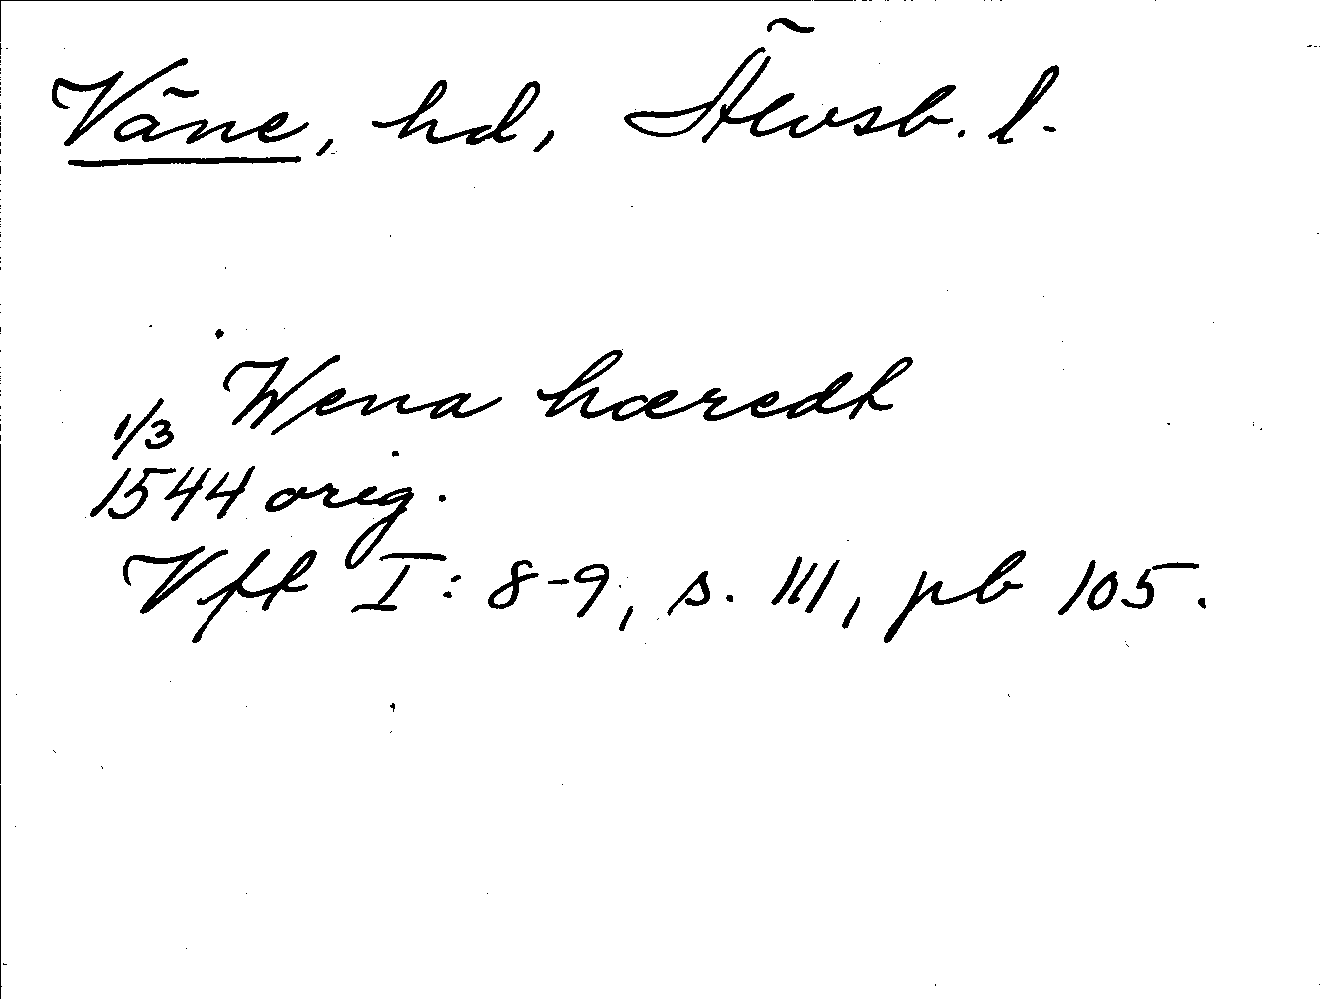 Väne, hd, Älvsb. l.
Wena hæredt
1/3
1544 orig.
Vft I: 8-9, s. 111, pb 105.